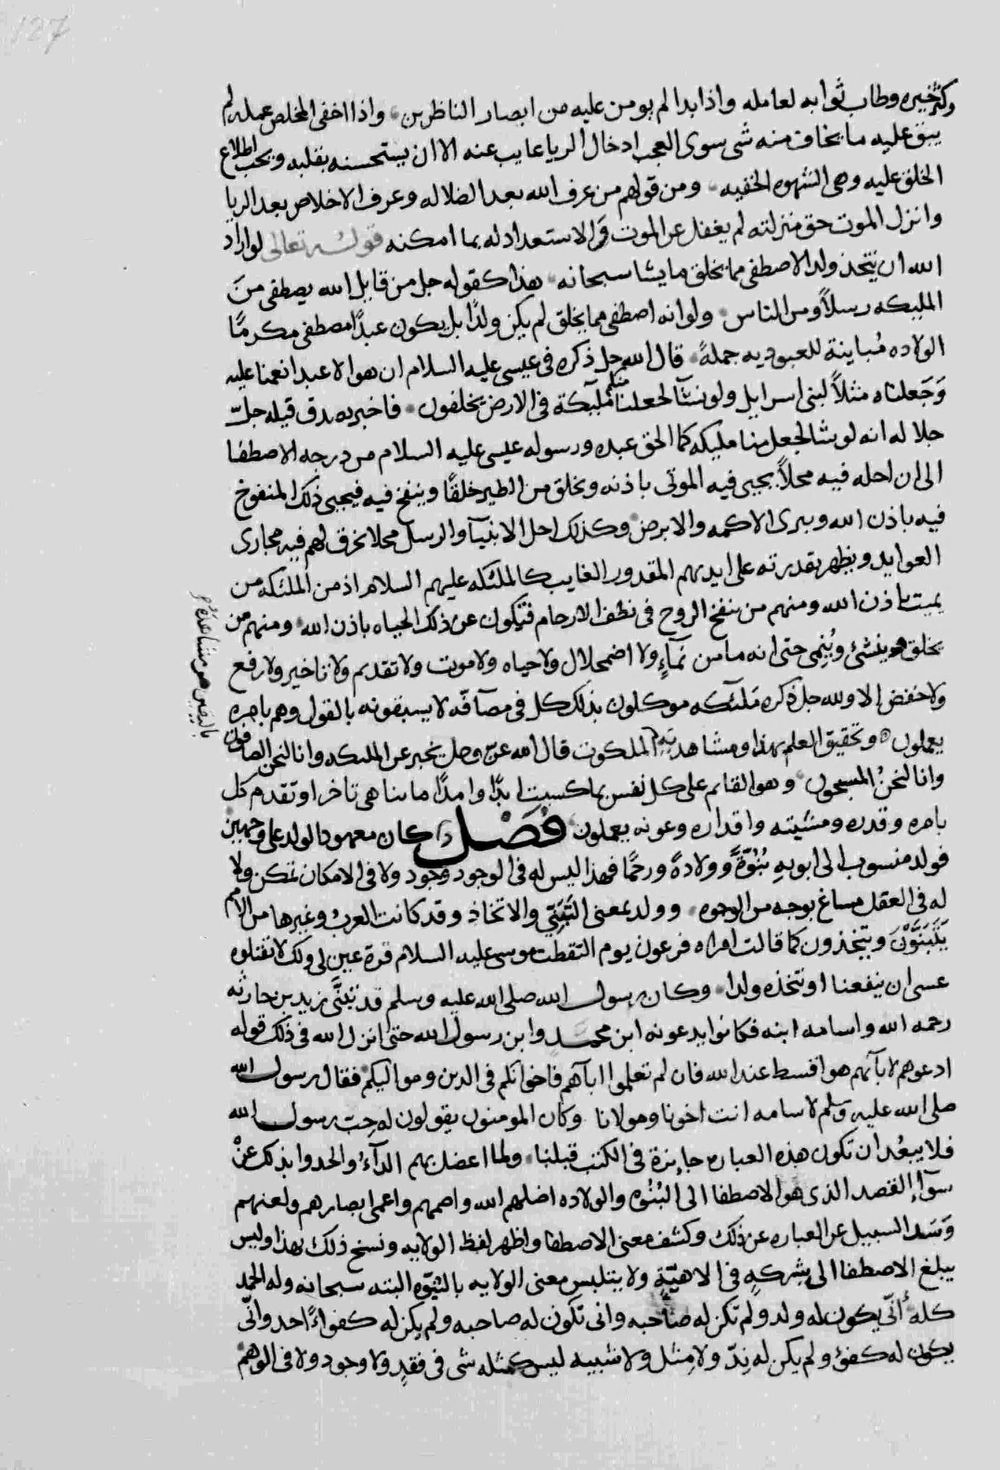 127
وكثر خيره وطاب ثوابه لعامله واذا بدا لم يومن عليه من ابصار الناظرين واذا اخفى المخلص عمله لم
يبق عليه ما يخاف منه شى سوى العجب ادخال الريا عايب عنه الا ان يستحسنه بقلبه ويحب اطلاع
الخلق عليه وهى الشهوه الخفيه ومن قولهم من عرف الله بعد الضلاله وعرف الاخلاص بعد الريا
وانزل الموت حق منزلته لم يغفل عن الموت فى الاستعداد له بما امكنه قوله تعالى لو اراد
الله ان يتخذ ولدا لاصطفى مما يخلق ما يشا سبحانه هذا كقوله جل من قايل الله يصطفى من
المليكه رسلاً ومن الناس ولو انه اصطفى مما يخلق لم يكن ولدًا بل يكون عبدًا مصطفى مكرمًا
الولاده مُباينة للعبوديه جملةً قال الله جل ذكره فى عيسى عليه السلام ان هو الا عبد انعمنا عليه
وَجَعلناه مثلاً لبنى اسرايل ولو نشآ لجعلنا منكم ملآيكة فى الارض يخلفون فاخبر بصدق قيله جلّ
جلاله انه لو شا لجعل منا مليكه كما الحق عبده ورسوله عيسى عليه السلام من درجه الاصطفا
الى ان احله فيه محلاً يحيى فيه الموتى باذنه ويخلق من الطير خلقًا وينفخ فيه فيحيى ذلك المنفوخ
فيه باذن الله ويبرى الاكمه والابرص وكذلك احل الانبيآ والرسل محلا تخرق لهم فيه مجارى
العوايد ويظهر بقدرته على ايديهم المقدور الغايب كالملئكه عليهم السلام اذ من الملئكه من
يميت باذن الله ومنهم من ينفخ الروح فى نطف الارحام فتكون عن ذلك الحياه باذن الله ومنهم من
يخلق وينشئ ويُنمى حتى انه ما من نمآءٍ ولا اضمحلال ولا حياه ولا موت ولا تقديم ولا تاخير ولا رفع
ولا خفض الا ولله جل ذكره مَلئكه موكلون بذلك كل فى مصآفّه لا يسبقونه بالقول وهم بامره
يعملون وتحقيق العلم بهذا ومشاهدته الملكوت قال الله عز وجل يخبر عن المليكه وانا لنحن الصافون
وانا لنحنُ المسبحون وهو القايم على كل نفس بما كسبت ابدًا وامدًا ما تناهى تاخر او تقدم كل
بامره وقدره ومشيته واقداره وعونه يعملون فَصْل كان معهود الولد على وجهين
فولد منسوب الى ابويه بُنُوّةً وولادةً ورحمًا فهذا ليس له فى الوجود وجود ولا فى الامكان تمكن ولا
له فى العقل مساغ بوجه من الوجوه وولد بمعنى التَّبَنّى والاتخاذ وقد كانت العربُ وغيرها من الامم
يَتَبَنَّوْنَ ويتخذون كما قالت امراه فرعون يوم التقطت موسى عليه السلام قرة عين لى ولك لا تقتلوه
عسى ان ينفعنا او نتخذه ولدا وكان رسول الله صلى الله عليه وسلم قد تبنَّى زيد بن حارثه
رحمه الله واسامه ابنه فكانوا يدعونه ابن محمد وابن رسول الله حتى انزل الله فى ذلك قوله
ادعوهم لابآئهم هو اقسط عند الله فان لم تعلموا ابآهم فاخوانكم فى الدين ومواليكم فقال رسول الله
صلى الله عليه وسلم لاسامه انت اخونا ومولانا وكان المومنون يقولون له حِبّ رسول الله
فلا يبعُد ان تكون هذه العباره جايزة فى الكتب قبلنا ولما اعضل بهم الدآءُ والحدوا بذلك عنْ
سوآءِ القصد الذى هو الاصطفا الى البُنُوه والولاده اضلهم الله واصمهم واعمى ابصارهم ولعنهم
وَسَد السبيل عن العباره عن ذلك وكشف معنى الاصطفا واظهر لفظ الولايه ونسخ ذلك بهذا وليس
يبلغ الاصطفا الى شركهٍ فى الاهيّةٍ ولا يتلبس معنى الولايه بالبُنُوّه البته سبحانه وله الحمد
كله أنّى يكون له ولد ولم تكن له صاحبه وانى تكون له صاحبه ولم يكن له كفوًا احد وانّى
يكون له كفؤ ولم يكن له نِدّ ولا مثل ولا شبيه ليس كمثله شى فى فقدٍ ولا وجود ولا فى الوهم